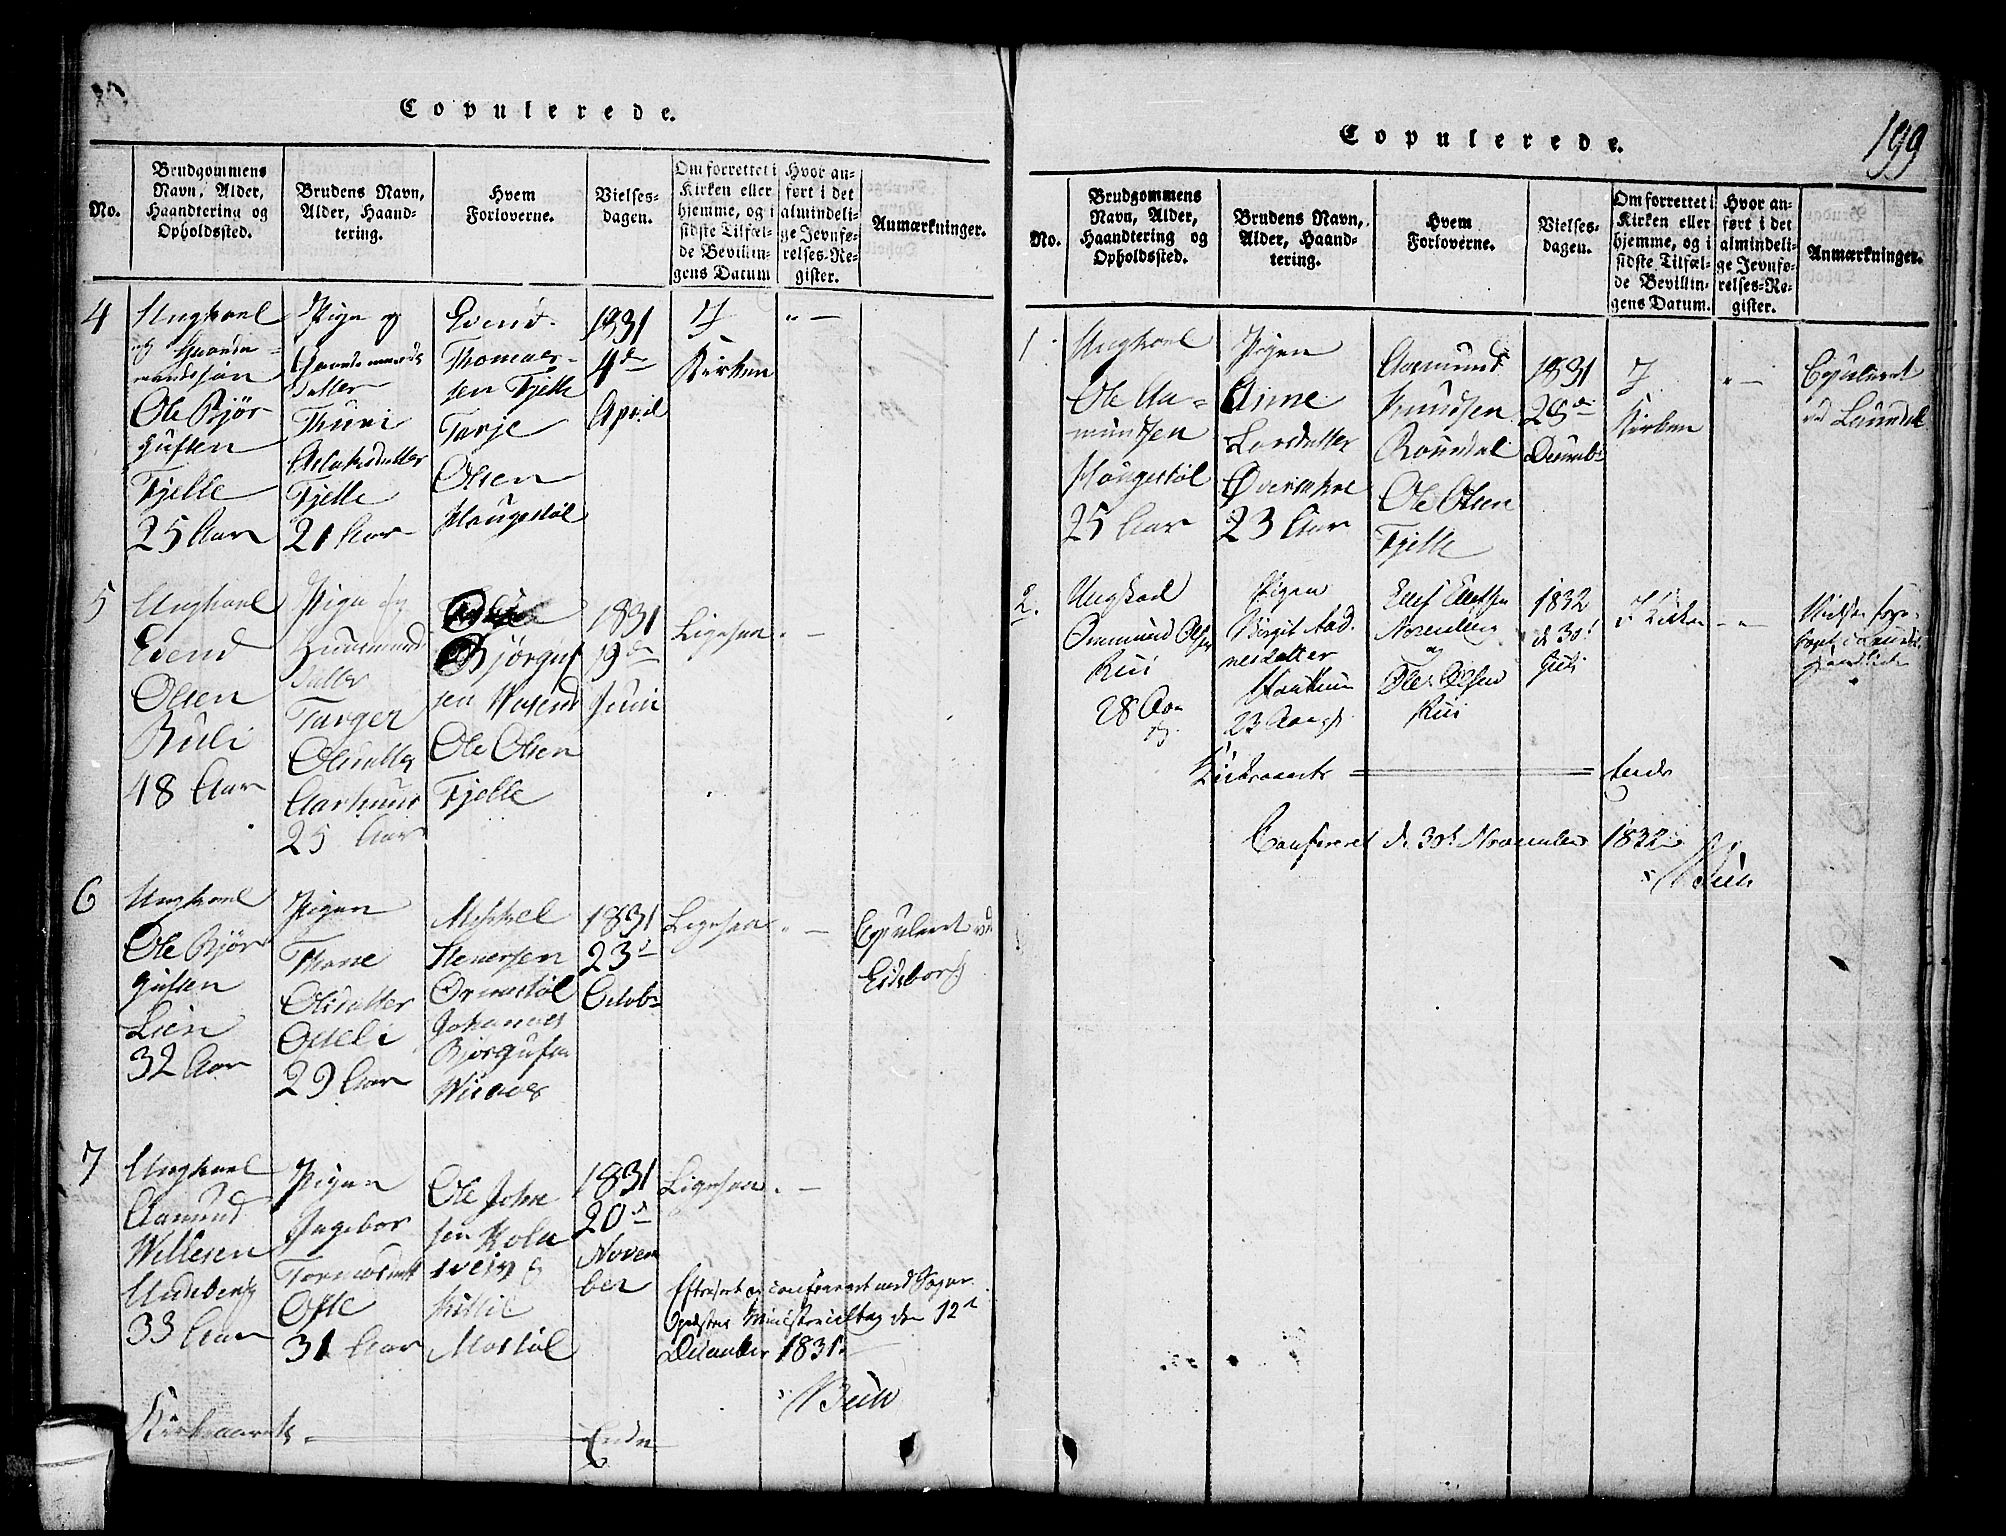 Copulerede.
No.
Brudgommens
Navn, Alder,
Haandtering og
Opholdssted.
Brudens Navn,
Alder, Haand-
tering.
Hvem
Forloverne.
Vielses-
dagen.
Om forrettet i
Kirken eller
hjemme, og i
sidste Tilfæl-
de Bevillin-
gens Datum
Hvor an-
ført i det
almindeli-
ge Jevnfø-
relses-Re-
gister.
Anmærkninger.
4
Ungkarl
og Gaard-
mandssøn
Ole Bjør
gufsen
Fjelle
25 Aar
Pige og
Gaardmands
datter
Thuri
Aslaksdatter
Fjelle
21 Aar
Evend
Thomas-
sen Fjelle
Tarje
Olsen
Haugestøl
1831
4de
April
I
Kirken
" —
5
Ungkarl
Evend
Olsen
Rui
48 Aar
Pige og
Huusmands
datter
Targer
Olsdatter
Aarhuus
25 Aar
Bjørguf
sen
Ole Olsen
Fjelle
1831
19de
Juni
Ligesaa
" —
6
Ungkarl
Ole Bjør
gufsen
Lien
32 Aar
Pigen
Thone
Olsdatter
29 Aar
Mikkel
Stenersen
Ormestøl
Johannes
Bjørgufsen
1831
23de
Octobr
Ligesaa
" —
Copuleret ved
Eidsborg
7
Ungkarl
Aamund
Willesen
33 Aar
Pigen
Ingebor
Ofte
31 Aar
Ole John
sen
Kittil
Mostøl
1831
20de
Novem
ber
Ligesaa
" —
Efterseet og confereret med Sogne
Præstens Ministerialbog den 12te
December 1831.
Kirkeaarets
Ende
Copulerede.
199
No.
Brudgommens
Navn, Alder,
Haandtering og
Opholdssted.
Brudens Navn,
Alder, Haand-
tering.
Hvem
Forloverne.
Vielses-
dagen.
Om forrettet i
Kirken eller
hjemme, og i
sidste Tilfæl-
de Bevillin-
gens Datum.
Hvor an-
ført i det
almindeli-
ge Jevnfø-
relses-Re-
gister.
Anmærkninger.
1
Ungkarl
Ole Aa-
mundsen
Haugestøl
25 Aar
Pigen
Anne
Larsdatter
23 Aar
Aamund
Knudsen
Ole Olsen
Fjelle
1831
28de
Decembr
I
Kirken
" —
Copuleret
ved Laurdal
2.
Ungkarl
Ommund Olsen
Rui
28 Aar
Pigen
Birgit Aad
nesdatter
23 Aar
Ellef Ellefsen
og
Ole Olsen
Rui
1832
d. 30t
Juli
I Kirken
" —
Kirkeaarets
Ende
Confereret d. 30t November 1832